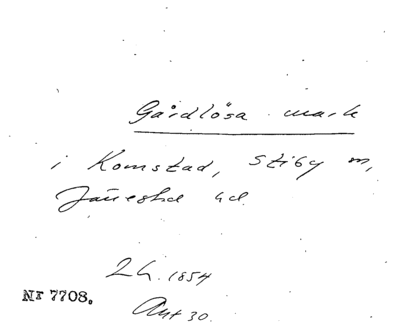 Gårdlösa mark
i Komstad, Stiby sn,
Järrestad hd.
2h. 1854
Nr 7708.
Aut 30.